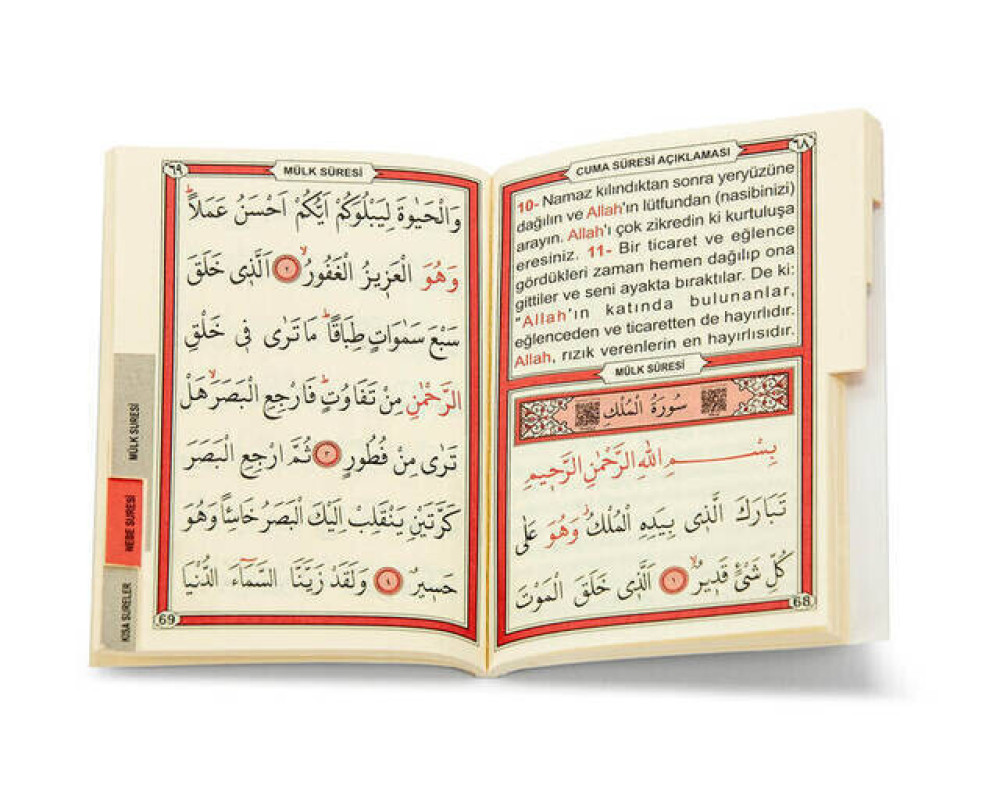 ٦٨
CUMA SÛRESİ AÇIKLAMASI
10- Namaz kılındıktan sonra yeryüzüne
dağılın ve Allah'ın lütfundan (nasibinizi)
arayın. Allah'ı çok zikredin ki kurtuluşa
eresiniz. 11- Bir ticaret ve eğlence
gördükleri zaman hemen dağılıp ona
gittiler ve seni ayakta bıraktılar. De ki:
"Allah'ın katında bulunanlar,
eğlenceden ve ticaretten de hayırlıdır.
Allah, rızık verenlerin en hayırlısıdır.
MÜLK SÛRESİ
سُورَةُ الْمُلْكِ
بِسْمِ اللهِ الرَّحْمٰنِ الرَّحِيمِ
تَبَارَكَ الَّذِى بِيَدِهِ الْمُلْكُ وَهُوَ عَلٰى
كُلِّ شَىْءٍ قَدِيرٌۙ ١ اَلَّذِى خَلَقَ الْمَوْتَ
68
٦٩
MÜLK SÛRESİ
وَالْحَيٰوةَ لِيَبْلُوَكُمْ اَيُّكُمْ اَحْسَنُ عَمَلاًۜ
وَهُوَ الْعَزِيزُ الْغَفُورُۙ ٢ اَلَّذِى خَلَقَ
سَبْعَ سَمٰوَاتٍ طِبَاقًاۜ مَا تَرٰى فِى خَلْقِ
الرَّحْمٰنِ مِنْ تَفَاوُتٍۜ فَارْجِعِ الْبَصَرَۙ هَلْ
تَرٰى مِنْ فُطُورٍ ٣ ثُمَّ ارْجِعِ الْبَصَرَ
كَرَّتَيْنِ يَنْقَلِبْ اِلَيْكَ الْبَصَرُ خَاسِئًا وَهُوَ
حَسِيرٌ ٤ وَلَقَدْ زَيَّنَّا السَّمَٓاءَ الدُّنْيَا
69
MÜLK SURESİ
NEBE SURESİ
KISA SURELER